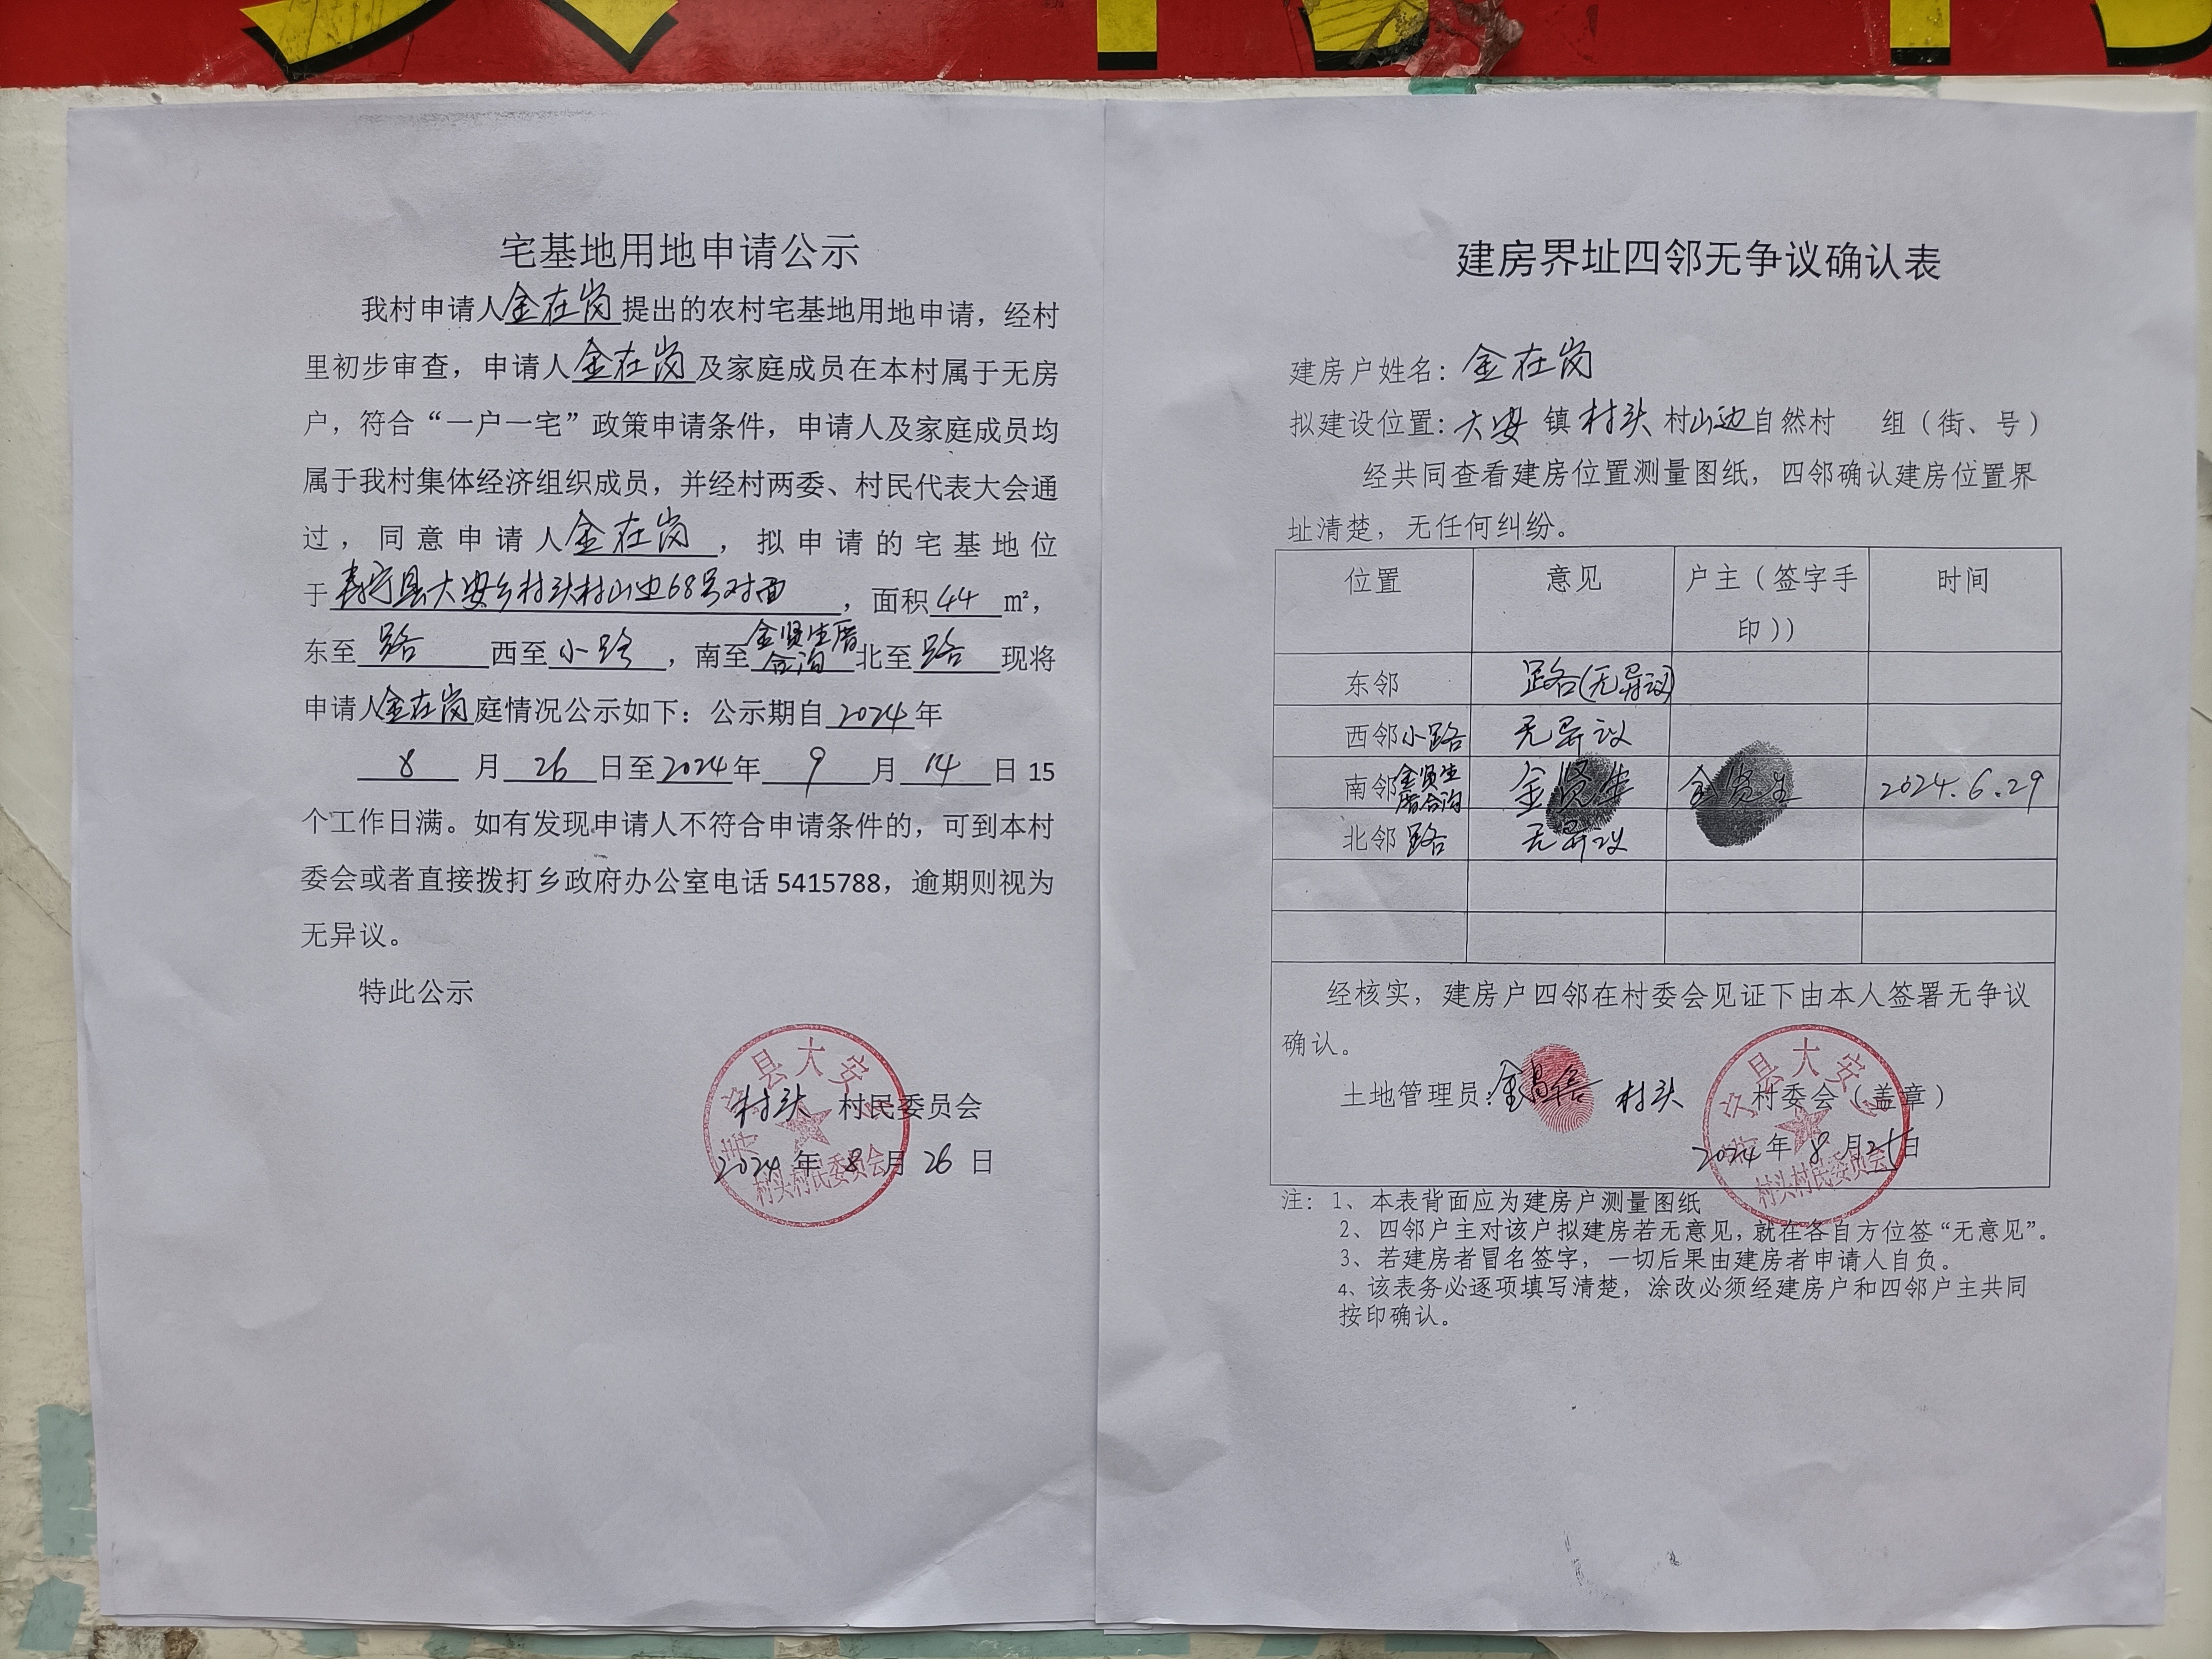 宅基地用地申请公示
我村申请人金在岗提出的农村宅基地用地申请，经村
里初步审查，申请人金在岗及家庭成员在本村属于无房
户，符合“一户一宅”政策申请条件，申请人及家庭成员均
属于我村集体经济组织成员，并经村两委、村民代表大会通
过，同意申请人金在岗，拟申请的宅基地位
于寿宁县大安乡村头村山边68号对面，面积44㎡，
东至路西至小路，南至金贤生厝合沟北至路现将
申请人金在岗庭情况公示如下：公示期自2024年
8月26日至2024年9月14日15
个工作日满。如有发现申请人不符合申请条件的，可到本村
委会或者直接拨打乡政府办公室电话5415788，逾期则视为
无异议。
特此公示
村头村民委员会
2024年8月26日
县大安
村头村民委员会
建房界址四邻无争议确认表
建房户姓名：金在岗
拟建设位置：大安镇村头村山边自然村 组（街、号）
经共同查看建房位置测量图纸，四邻确认建房位置界
址清楚，无任何纠纷。
位置 意见 户主（签字手印）） 时间
东邻 路(无异议)
西邻小路 无异议
南邻金贤生厝合沟 金贤生 金贤生 2024.6.29
北邻路 无异议
经核实，建房户四邻在村委会见证下由本人签署无争议
确认。
土地管理员：金 村头 村委会（盖章）
2024年8月25日
县大安
村头村民委员会
注：1、本表背面应为建房户测量图纸
2、四邻户主对该户拟建房若无意见，就在各自方位签“无意见”。
3、若建房者冒名签字，一切后果由建房者申请人自负。
4、该表务必逐项填写清楚，涂改必须经建房户和四邻户主共同
按印确认。